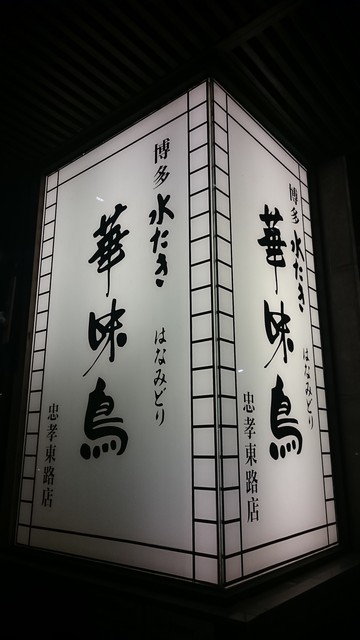 博多 水たき
はなみどり
華味鳥
忠孝東路店
博多 水たき
はなみどり
華味鳥
忠孝東路店